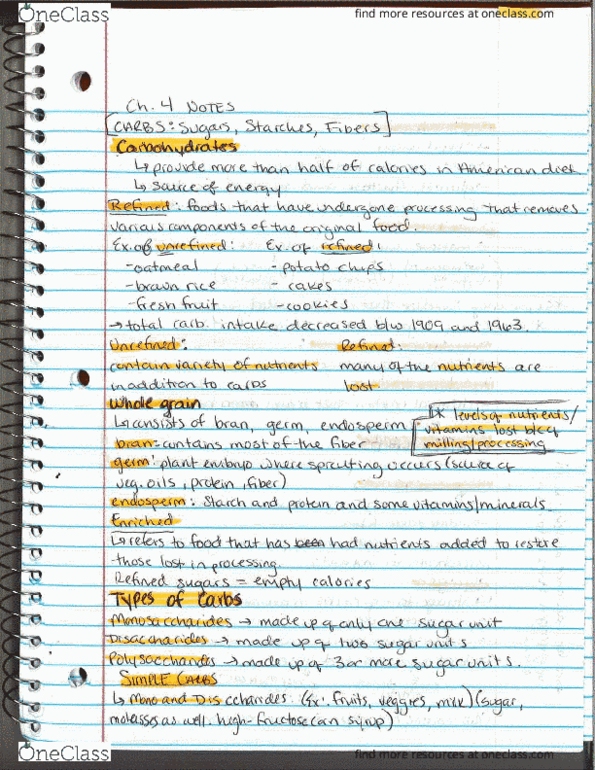 OneClass
find more resources at oneclass.com
Ch. 4 NOTES
CARBS: Sugars, Starches, Fibers
Carbohydrates
↳ provide more than half of calories in American diet
↳ source of energy
Refined: foods that have undergone processing that removes
various components of the original food.
Ex. of unrefined: Ex. of refined:
-oatmeal - potato chips
-brown rice - cakes
-fresh fruit -cookies
→ total carb. intake decreased b/w 1909 and 1963.
Unrefined: Refined:
contain variety of nutrients many of the nutrients are
in addition to carbs lost
Whole grain
↳ consists of bran, germ, endosperm
* levels of nutrients/
vitamins lost b/c of
milling/processing
bran-contains most of the fiber
germ: plant embryo where sprouting occurs (source of
veg. oils, protein, fiber)
endosperm: starch and protein and some vitamins/minerals
Enriched
↳ refers to food that has been had nutrients added to restore
those lost in processing.
Refined sugars = empty calories
Types of Carbs
Monosaccharides → made up of only one sugar unit
Disaccharides → made up of two sugar units
Polysaccharides → made up of 3 or more sugar units.
SIMPLE CARBS
↳ Mono and Disccharides (Ex: fruits, veggies, milk) (sugar,
molasses as well. high-fructose corn syrup)
OneClass
find more resources at oneclass.com